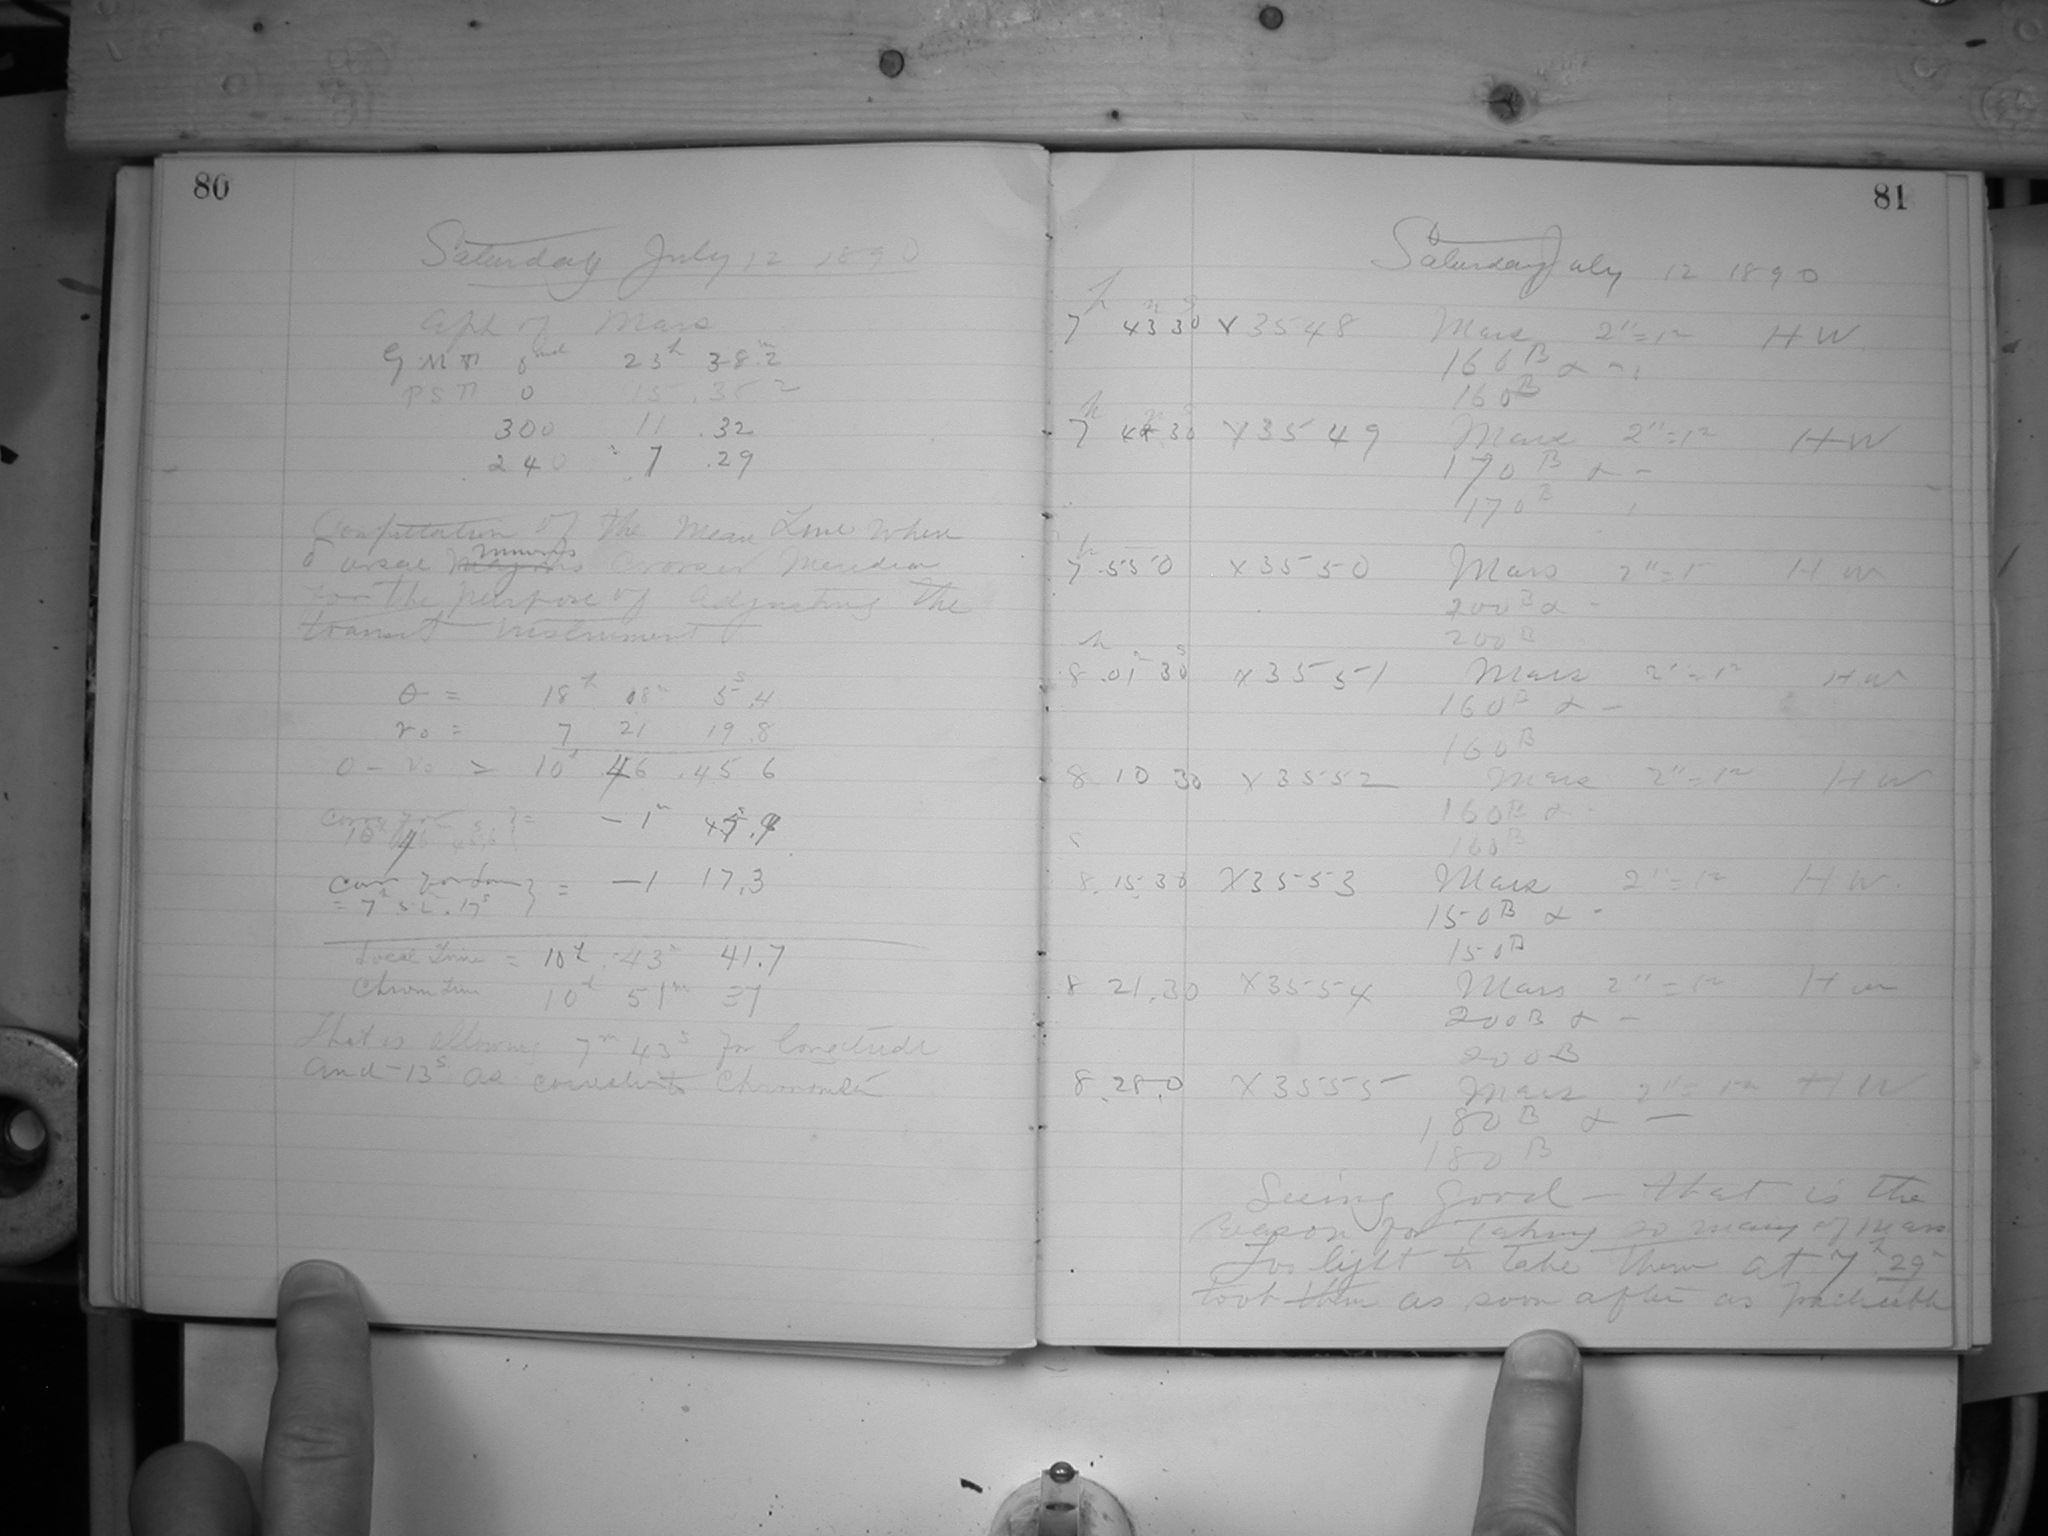 80
Saturday July 12 1890
Eph of Mars
G M T 0 23h 38.2m
P S T 0 15.38.2
300 11.32
240 7.29
Computation of the Mean Time when
δ ursae minoris crosses Meridian
for the purpose of adjusting the
transit instrument
θ = 18h 08m 5s.4
r0 = 7 21 19.8
θ - r0 = 10h 46.45 6
Corr for
10h 46 45.6 } = -1m 45s.9
Corr for Lon
= 7h 52.17s } = -1 17.3
Local Time = 10h 43m 41.7
Chrom Time 10h 51m 37
That is allowing 7m 43s for longitude
and -13s as correct Chronometer
81
Saturday July 12 1890
7h 43m 30s X3548 Mars 2"=1m H W
160B α -
160B
7h 30 X3549 Mars 2"=1m H W
170B α -
170B
7h.55 0 X3550 Mars 2"=1m H W
200B α -
200B
8h.01m 30s X3551 Mars 2"=1m H W
160B α -
160B
8 10 30 X3552 Mars 2"=1m H W
160B α -
160B
8.15.30 X3553 Mars 2"=1m H W.
150B α -
150B
8 21.30 X3554 Mars 2"=1m H W
200B α -
200B
8.28.0 X3555 Mars 2"=1m H W
180B α -
180B
Seeing good - that is the
reason for taking so many of Mars
Too light to take them at 7h 29m
took them as soon after as